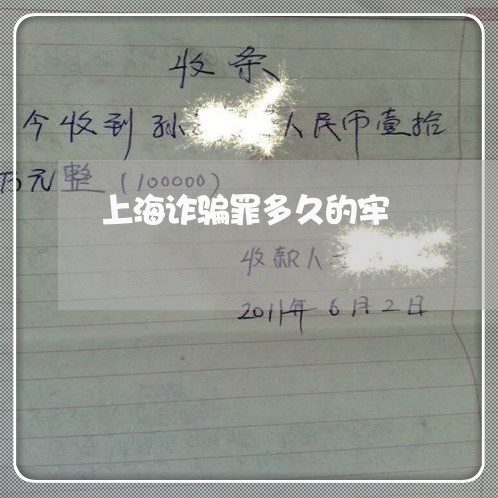 收条
今收到孙 人民币壹拾
万元整(100000)
上海诈骗罪多久的牢
收款人
2011年6月2日